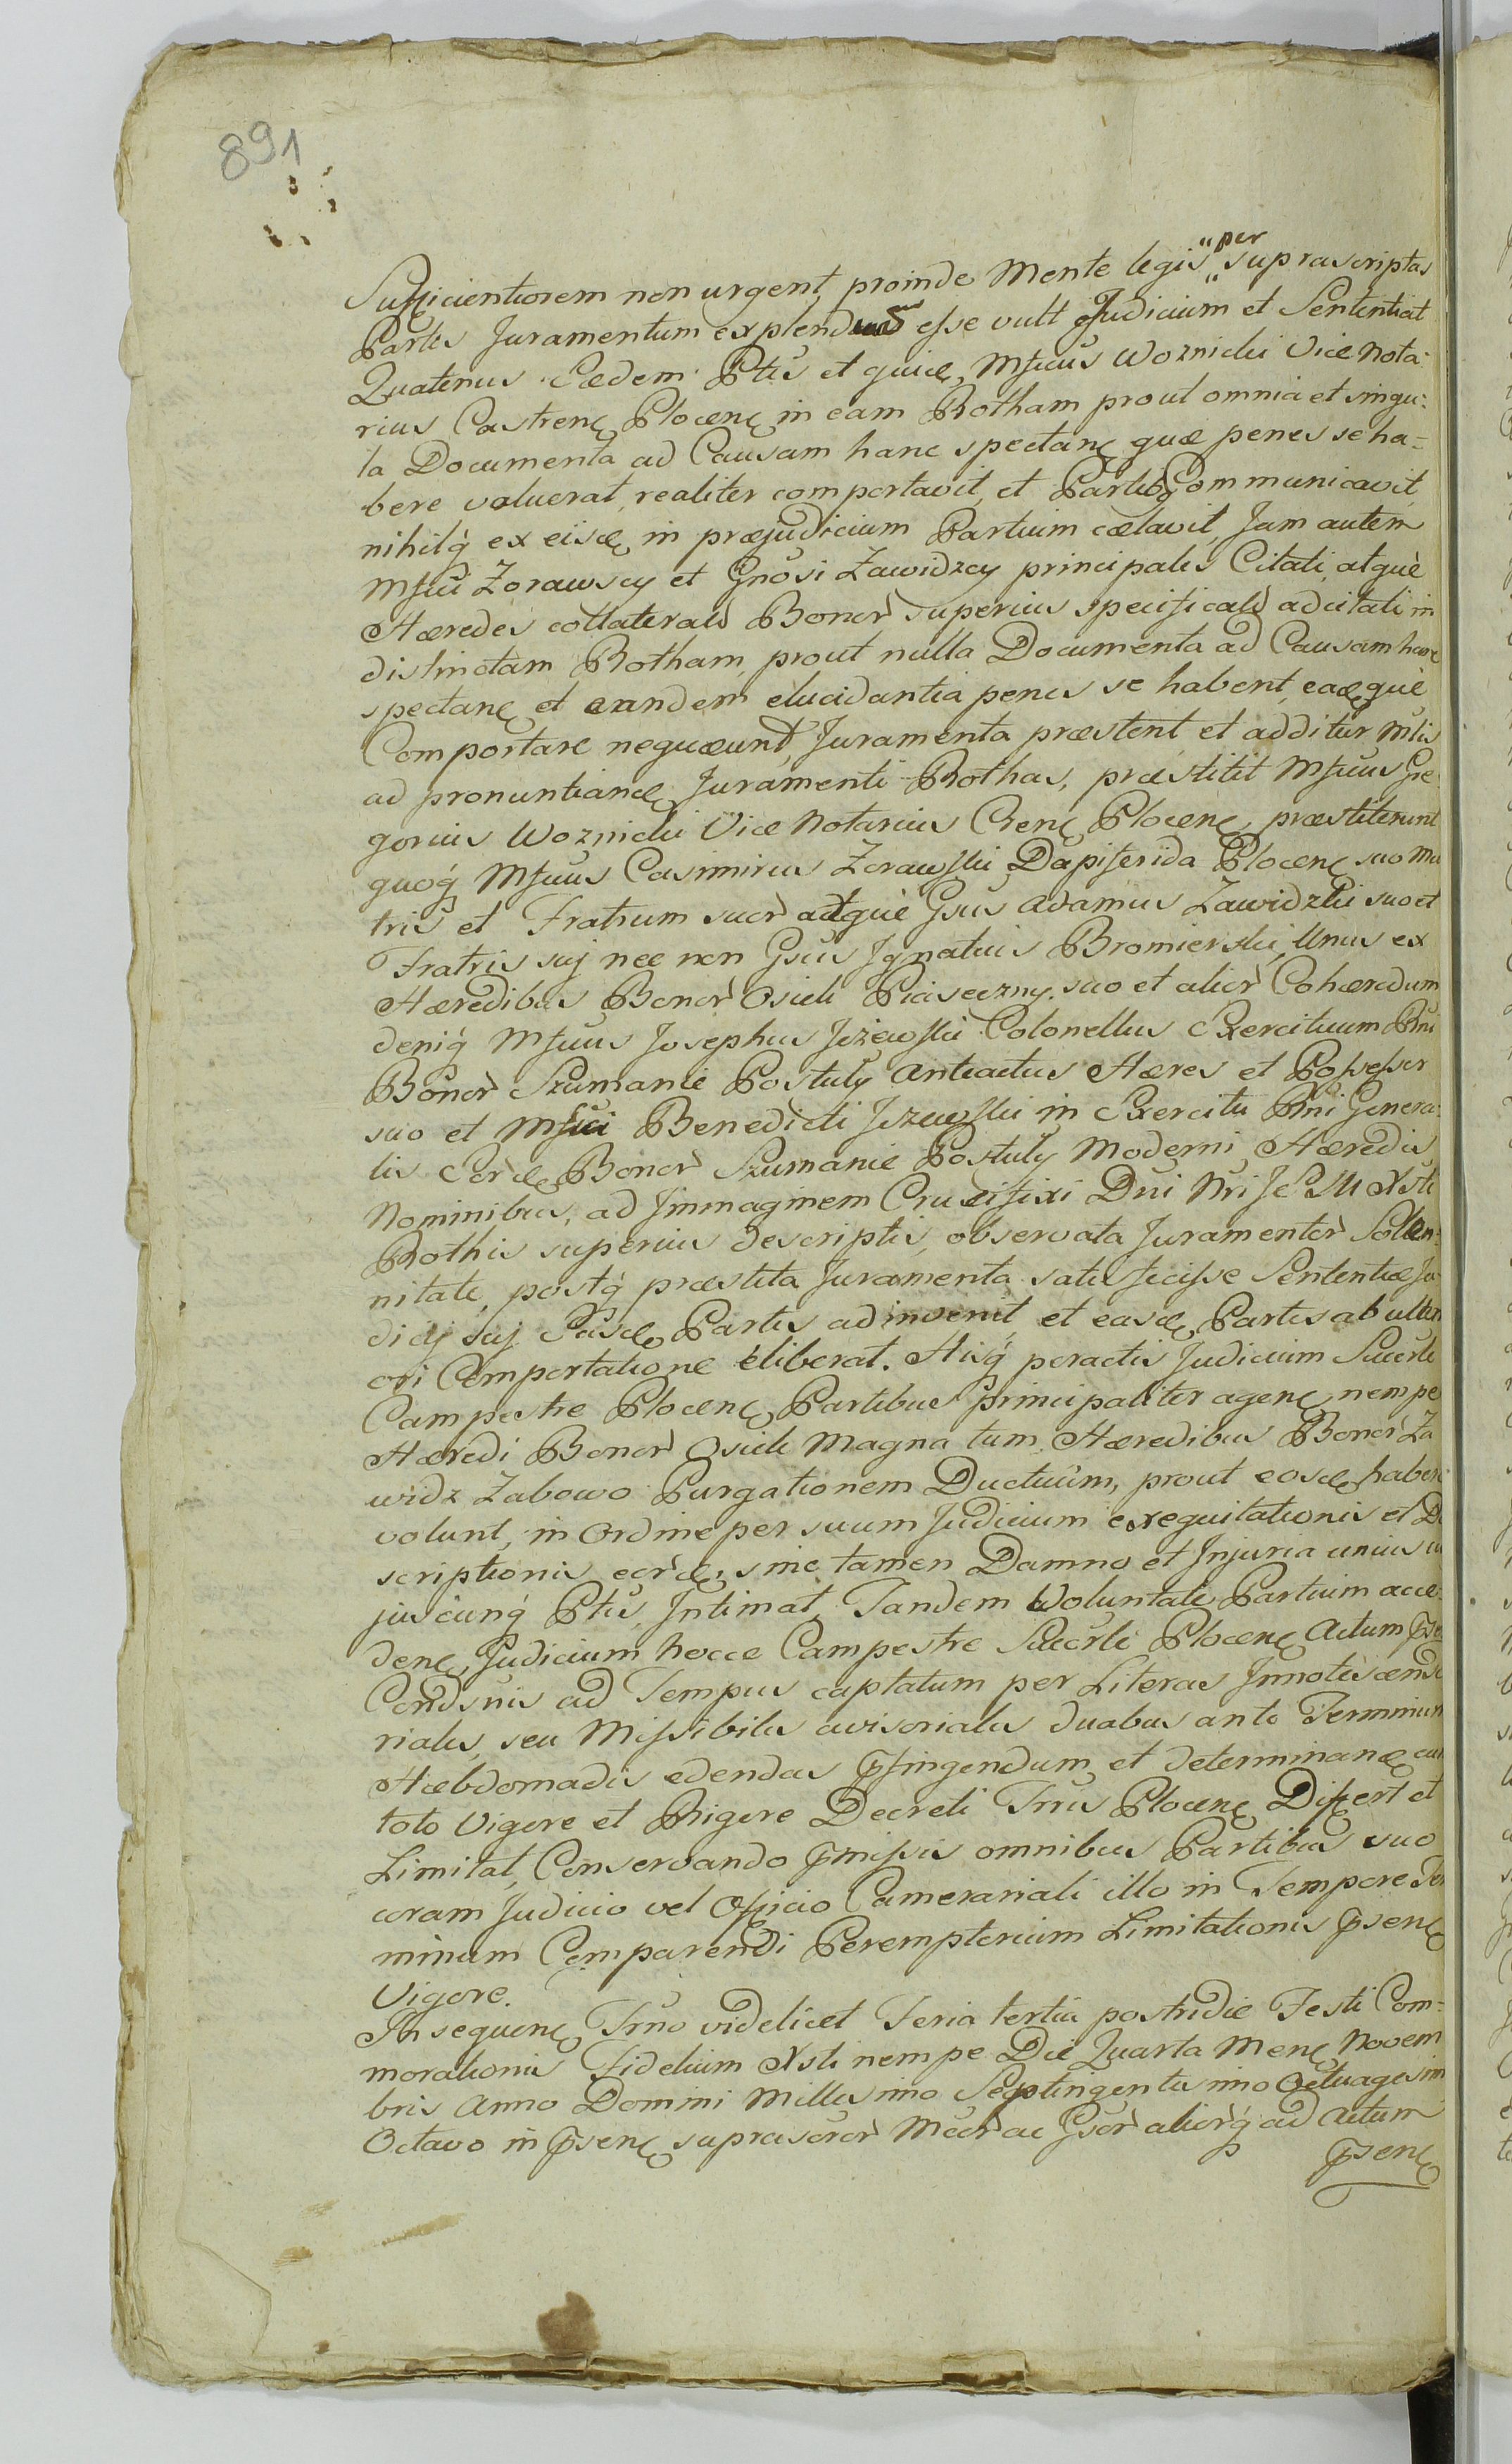 891
Sufficientiorem non urgent, proinde Mente legis "per" suprascriptas
Partes Juramentum explendum esse vult Judicium et Sententiat
Quatenus Eædem Ptes et quidē, Mfcus Woznicki Vice Nota:
rius Castrenę Plocenę in eam Rotham prout omnia et singu:
la Documenta ad Causam hanc spectanę quæ penes se ha=
bere valuerat, realiter comportavit, et Partibq Communicavit,
nihilq́ ex eisdē in præjudicium Partium cælavit, Jam autem
Mfci Zorawscy et Gnosi Zawidzcy principales Citati, atquè
Hæredes collaterales Bonor̀ superius specificatò adcitati in
distinctam Rotham, prout nulla Documenta ad Causam hanc
spectanę et eandem elucidantia penes se habent, eadęquè
Comportare nequeunt, Juramenta præstent et additur Mlis
ad pronuntiandę Juramenti Rothas, præstitit Mfcus Gre
gorius Woznicki Vice Notarius Crenę Plocenę, præstiterunt
quoq́ Mfcus Casimirus Zorawski Dapiferida Plocenę suo Ma
tris et Fratrum suor̀ adtquè Gsus Adamus Zawidzki suo et
Fratris suj nec non Gsus Jgnatius Bromierski, Unus ex
Hæredibus Bonor̀ Osieli Piaseczny suo et alior̀ Cohæredum
deniq́ Mfcus Josephus Jeżewski Colonellus Exercituum Rni
Bonor̀ Szumanie Postuły Antiactus Hæres et Possessor
suo et Mfci Benedicti Jezewski in Exercitu Rni Genera:
lis Eordę Bonor̀ Szumanie Postuły Moderni Hæredis
Nominibus, ad Jmmaginem Crucifixi Dni Nri JESU Xsti
Rothis superius descriptis, observata Juramentor̀ Solen:
nitate, postq́ præstita Juramenta satis fecisse Sententiæ Ju
dicij suj Easdę Partes adinvenit, et easdę Partes ab ulteri
ori Comportatione eliberat. Hisq́ peractis Judicium Succrle
Campestre Plocenę Partibus principaliter agenę nempe
Hæredi Bonor̀ Osieli Magna tum Hæredibus Bonor̀ Za
widz Zabowo Purgationem Ductuum, prout eosdę habere
volunt, in Ordine per suum Judicium exequitationis et De
scriptionis eordę, sine tamen Damno et Jnjuria unius cu
juscunq́ Ptis, Jntimat, Tandem Voluntati Partium acce:
denę, Judicium hocce Campestre Succrle Plocenę Actum psen
Condsnis ad Tempus captatum per Literas Jnnotescende
riales, seu Missibiles avisoriales duabus ante Terminum
Hæbdomadis edendas psingendum et determinandę cum
toto Vigore et Rigore Decreti Trnis Plocenę Differt et
Limitat, Conservando pmissis omnibus Partibus suo
coram Judicio vel Officio Camerariali illo in Tempore Ter
minum Comparendi Peremptorium Limitationis psenę
Vigore.
Jnsequenę Trno videlicet Feria tertia postridie Festi Com=
morationis Fidelium Xsti nempe Die Quarta Menę Novem
bris Anno Domini Millesimo Septingentesimo Octuagesimo
Octavo in psenę suprascror̀ Mccr̀ ac Gsor̀ aliorq́ ad Actum
psenę